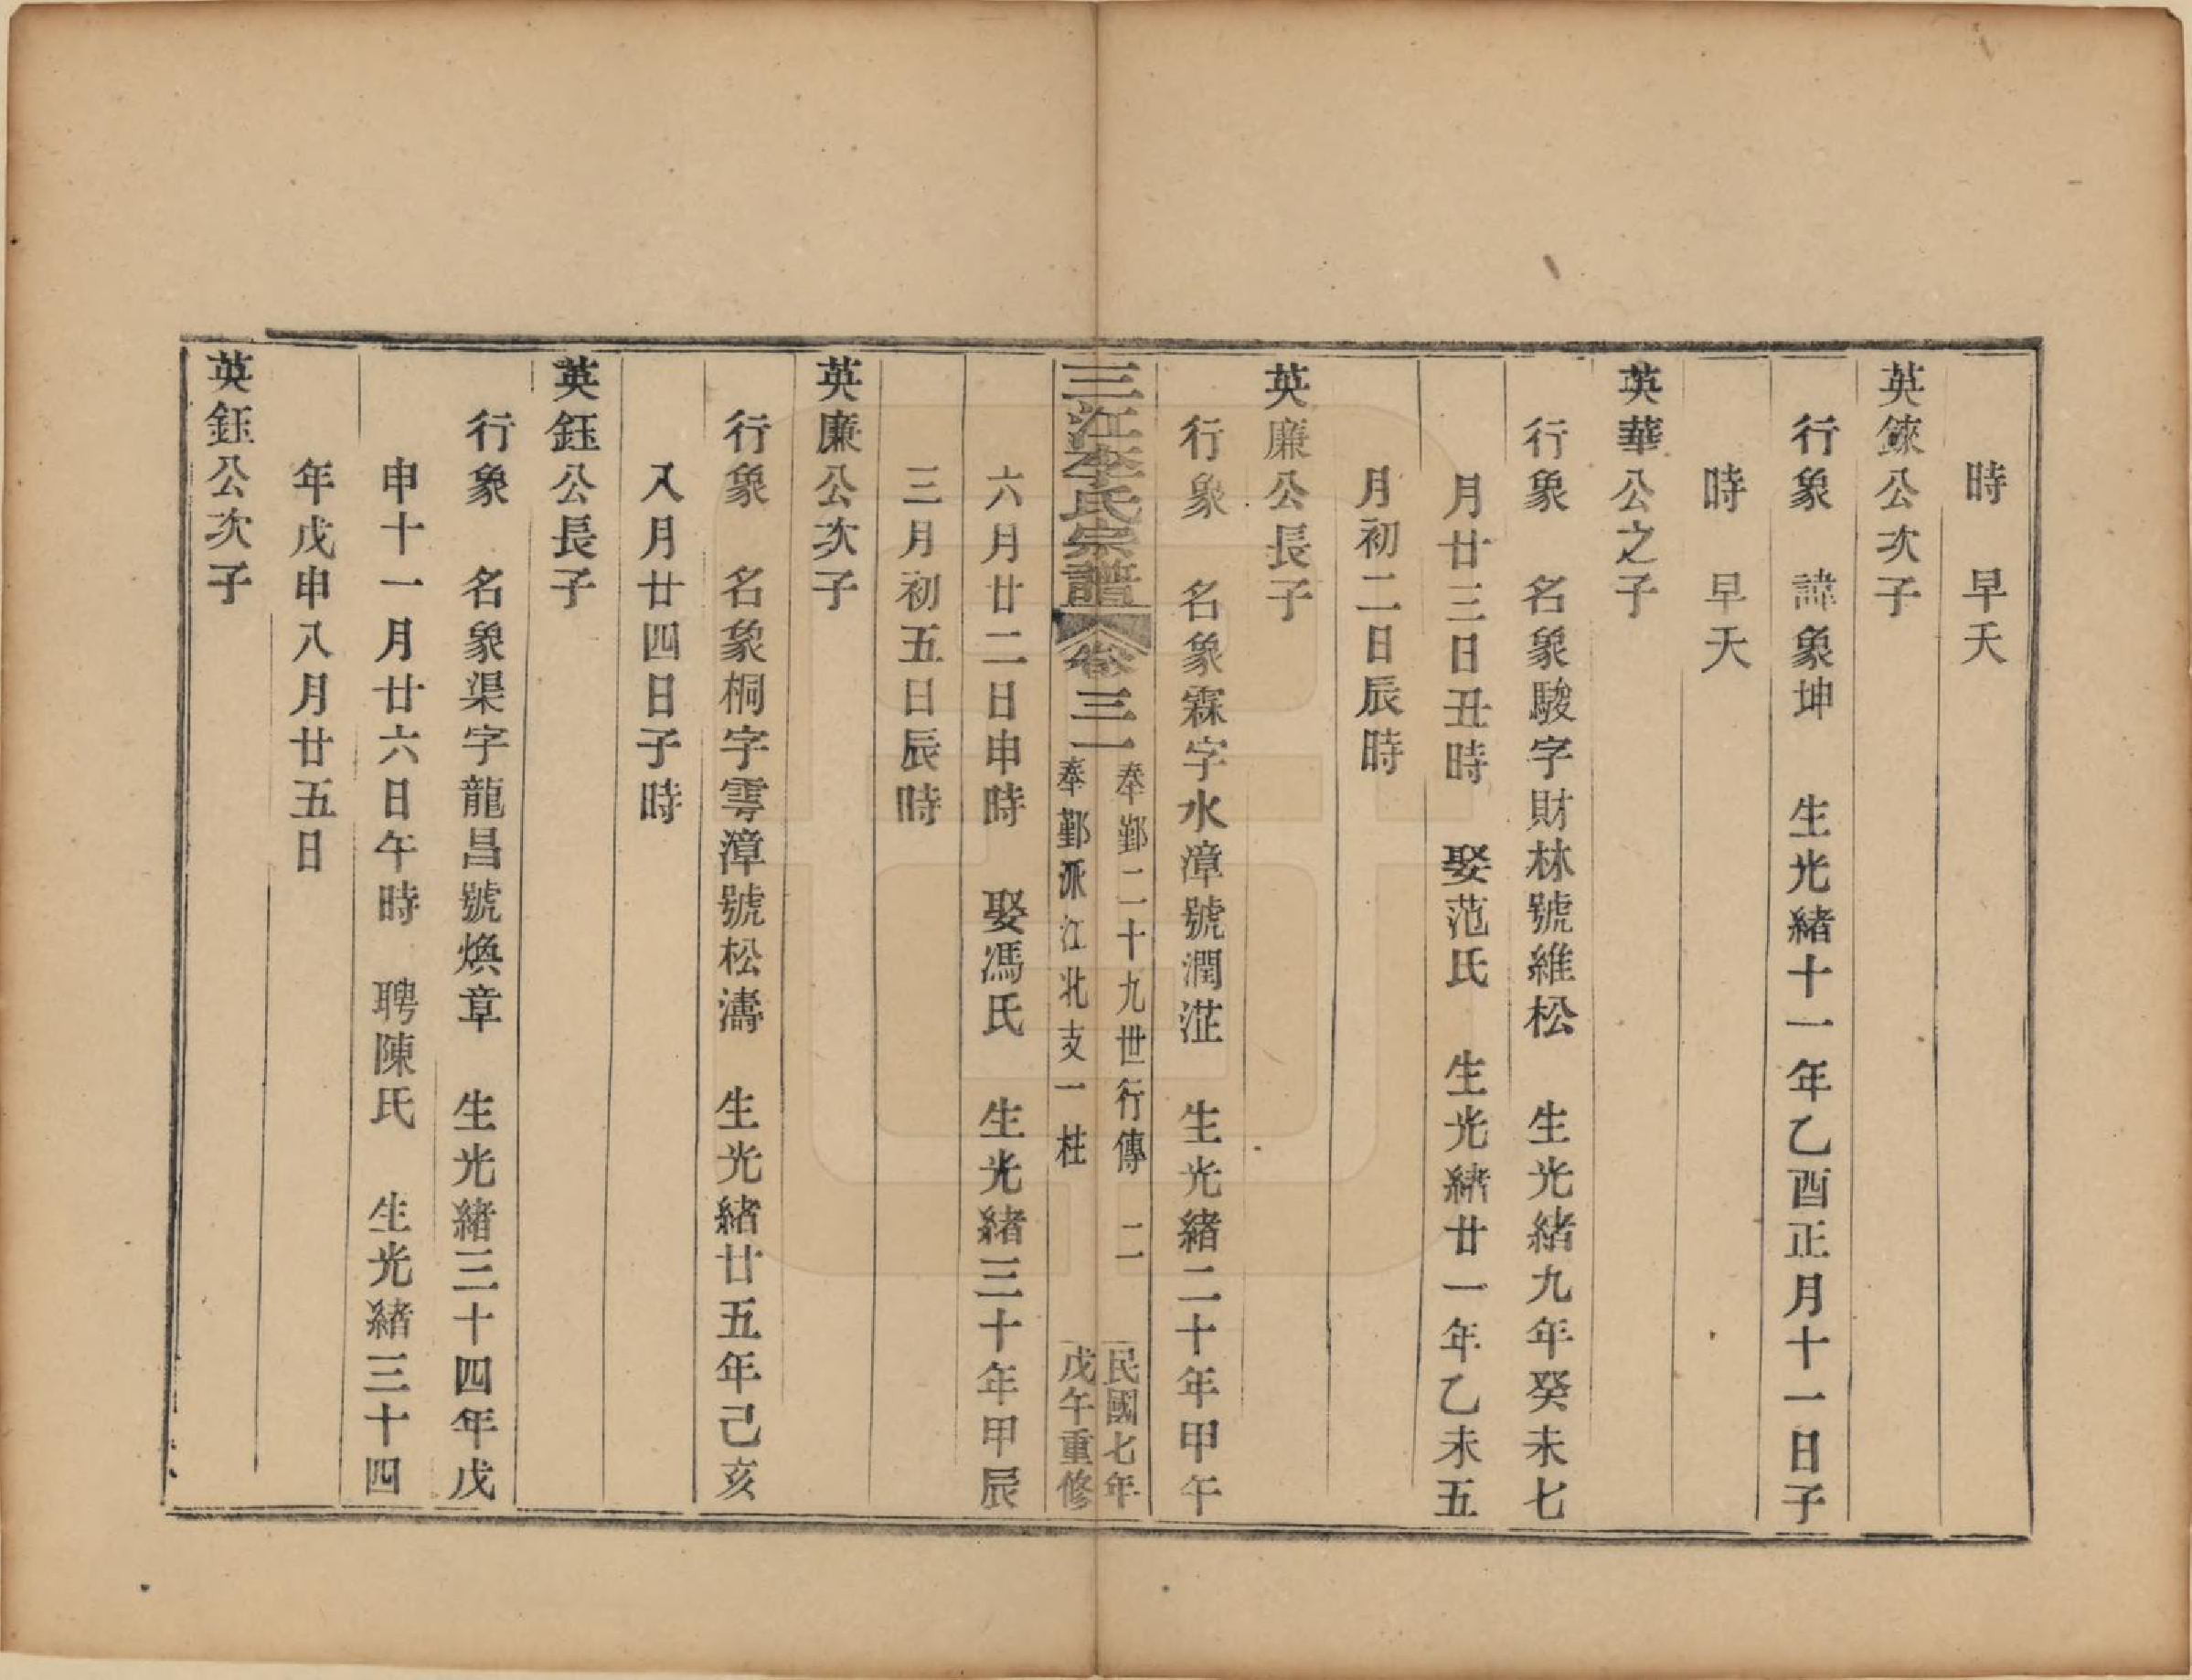 時　早夭
英錸公次子
行象　諱象坤　生光緒十一年乙酉正月十一日子
時　早夭
英華公之子
行象　名象駿字財林號維松　生光緒九年癸未七
月廿三日丑時　娶范氏　生光緒廿一年乙未五
月初二日辰時
英廉公長子
行象　名象霖字水漳號潤淽　生光緒二十年甲午
三江李氏宗譜　卷三一　奉鄞二十九世行傳　二　民國七年
奉鄞派江北支一柱　戊午重修
六月廿二日申時　娶馮氏　生光緒三十年甲辰
三月初五日辰時
英廉公次子
行象　名象桐字雩漳號松濤　生光緒廿五年己亥
又月廿四日子時
英鈺公長子
行象　名象渠字龍昌號煥章　生光緒三十四年戊
申十一月廿六日午時　聘陳氏　生光緒三十四
年戊申八月廿五日
英鈺公次子